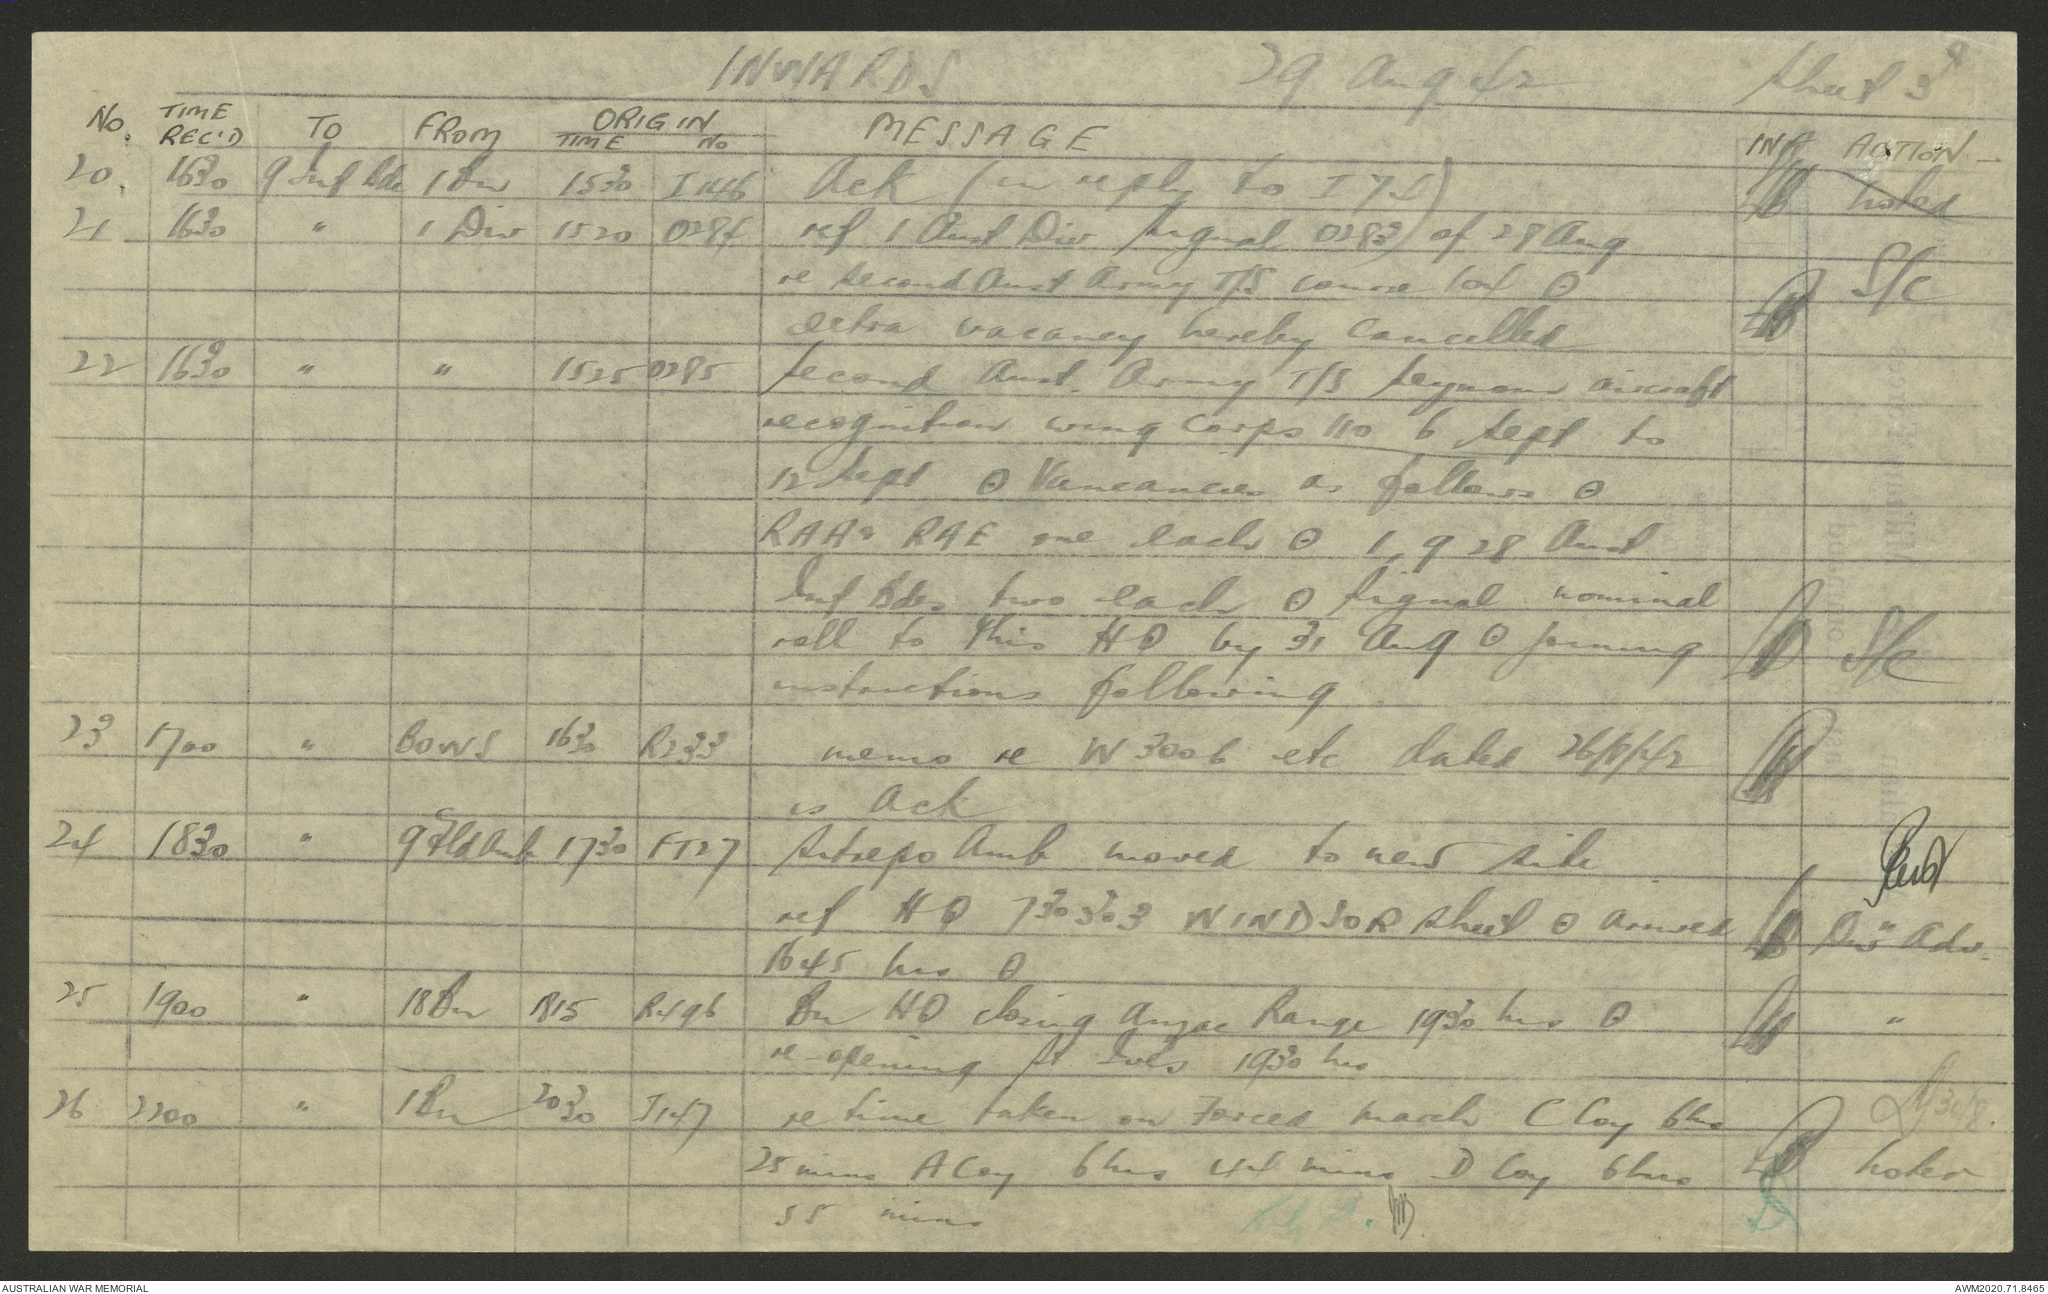 INWARDS 29 Aug 42 Sheet 3
No. TIME REC'D TO FROM ORIGIN TIME No MESSAGE IN A ACTION
20. 1630 9 Inf Bde 1 Bn 1530 I146 Ack (in reply to I71) noted
21 1630 " 1 Div 1520 0284 ref 1 Aust Div signal 0283 of 28 Aug
re Second Aust Army T/S course
extra vacancy hereby cancelled S/C
22 1630 " " 1525 0285 Second Aust. Army T/S Seymour aircraft
recognition wing Corps 110 6 Sept to
12 Sept O Vancancies as follows O
RAA & RAE one each O 1, 9 28 Aust
Inf Bdes two each O signal nominal
roll to this HQ by 31 Aug O joining S/C
instructions following
23 1700 " BOWS 1630 R233 memo re W3006 etc dated 26/8/42
is Ack
24 1830 " 9 Fld Amb 1730 FT27 Sitrepo Amb moved to new site
ref HQ 730303 WINDSOR sheet O arrived Div Adv.
1645 hrs O
25 1900 " 18 Bn 1815 R496 Bn HQ closing Anzac Range 1930 hrs O "
re-opening St Ives 1930 hrs
26 2200 " 1 Bn 2030 I147 re time taken on Forced march C Coy 6 hrs
25 mins A Coy 6 hrs 44 mins D Coy 6 hrs noted
55 mins
AUSTRALIAN WAR MEMORIAL AWM2020.71.8465